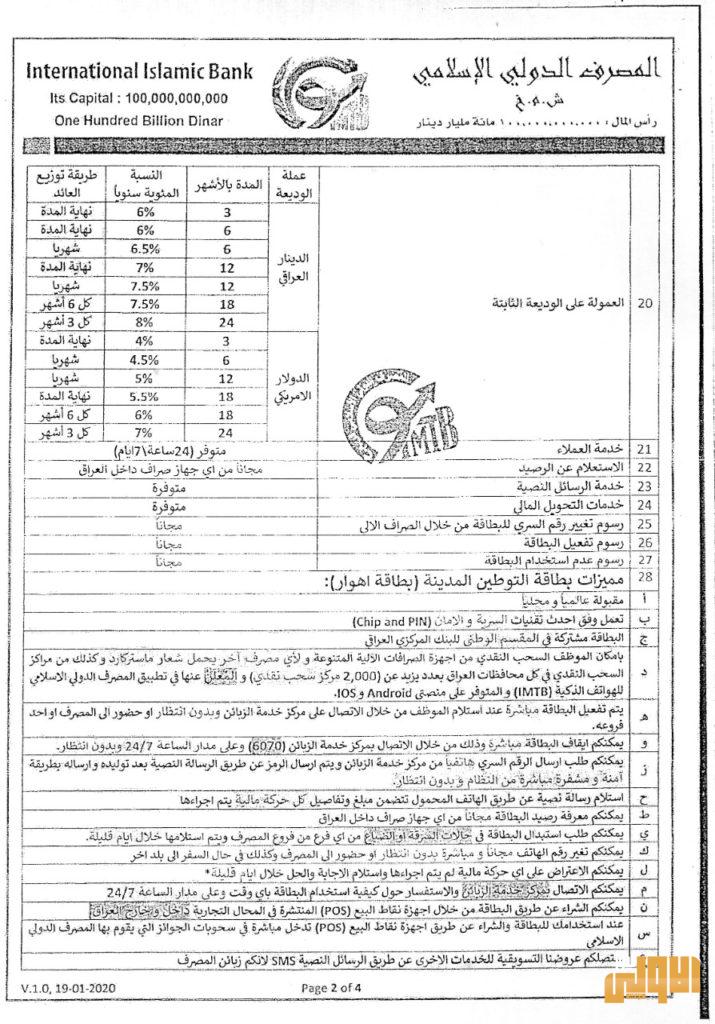 International Islamic Bank
Its Capital : 100,000,000,000
One Hundred Billion Dinar
IMTB
المصرف الدولي الإسلامي
ش.م.خ
رأس المال: ١٠٠,٠٠٠,٠٠٠,٠٠٠ مائة مليار دينار
20 العمولة على الوديعة الثابتة
عملة الوديعة المدة بالأشهر النسبة المئوية سنوياً طريقة توزيع العائد
الدينار العراقي
3 6% نهاية المدة
6 6% نهاية المدة
6 6.5% شهريا
12 7% نهاية المدة
12 7.5% شهريا
18 7.5% كل 6 أشهر
24 8% كل 3 أشهر
الدولار الامريكي
3 4% نهاية المدة
6 4.5% شهريا
12 5% شهريا
18 5.5% نهاية المدة
18 6% كل 6 أشهر
24 7% كل 3 أشهر
IMTB
21 خدمة العملاء متوفر (24ساعة\7ايام)
22 الاستعلام عن الرصيد مجاناً من اي جهاز صراف داخل العراق
23 خدمة الرسائل النصية متوفرة
24 خدمات التحويل المالي متوفرة
25 رسوم تغيير رقم السري للبطاقة من خلال الصراف الالي مجاناً
26 رسوم تفعيل البطاقة مجاناً
27 رسوم عدم استخدام البطاقة مجاناً
28 مميزات بطاقة التوطين المدينة (بطاقة اهوار):
أ مقبولة عالمياً و محلياً
ب تعمل وفق احدث تقنيات السرية و الامان (Chip and PIN)
ج البطاقة مشتركة في المقسم الوطني للبنك المركزي العراقي
د بامكان الموظف السحب النقدي من اجهزة الصرافات الالية المتنوعة و لأي مصرف آخر يحمل شعار ماستركارد و كذلك من مراكز
السحب النقدي في كل محافظات العراق بعدد يزيد عن (2,000 مركز سحب نقدي) و المُعلَن عنها في تطبيق المصرف الدولي الاسلامي
للهواتف الذكية (IMTB) و المتوفر على منصتي Android و IOS.
هـ يتم تفعيل البطاقة مباشرة عند استلام الموظف من خلال الاتصال على مركز خدمة الزبائن وبدون انتظار او حضور الى المصرف او احد
فروعه.
و يمكنكم ايقاف البطاقة مباشرة وذلك من خلال الاتصال بمركز خدمة الزبائن (6070) وعلى مدار الساعة 24/7 وبدون انتظار.
ز يمكنكم طلب ارسال الرقم السري هاتفياً من مركز خدمة الزبائن و يتم ارسال الرمز عن طريق الرسالة النصية بعد توليده و ارساله بطريقة
آمنة و مشفرة مباشرة من النظام و بدون انتظار.
ح استلام رسالة نصية عن طريق الهاتف المحمول تتضمن مبلغ وتفاصيل كل حركة مالية يتم اجراءها
ط يمكنكم معرفة رصيد البطاقة مجاناً من اي جهاز صراف داخل العراق
ي يمكنكم طلب استبدال البطاقة في حالات السرقة او الضياع من اي فرع من فروع المصرف ويتم استلامها خلال ايام قليلة.
ك يمكنكم تغير رقم الهاتف مجاناً و مباشرة بدون انتظار او حضور الى المصرف وكذلك في حال السفر الى بلد اخر
ل يمكنكم الاعتراض على اي حركة مالية لم يتم اجراءها واستلام الاجابة والحل خلال ايام قليلة*
م يمكنكم الاتصال بمركز خدمة الزبائن والاستفسار حول كيفية استخدام البطاقة باي وقت وعلى مدار الساعة 24/7
ن يمكنكم الشراء عن طريق البطاقة من خلال اجهزة نقاط البيع (POS) المنتشرة في المحال التجارية داخل و خارج العراق
س عند استخدامك للبطاقة والشراء عن طريق اجهزة نقاط البيع (POS) تدخل مباشرة في سحوبات الجوائز التي يقوم بها المصرف الدولي
الاسلامي
ستصلكم عروضنا التسويقية للخدمات الاخرى عن طريق الرسائل النصية SMS لانكم زبائن المصرف
V.1.0, 19-01-2020
Page 2 of 4
الاولى